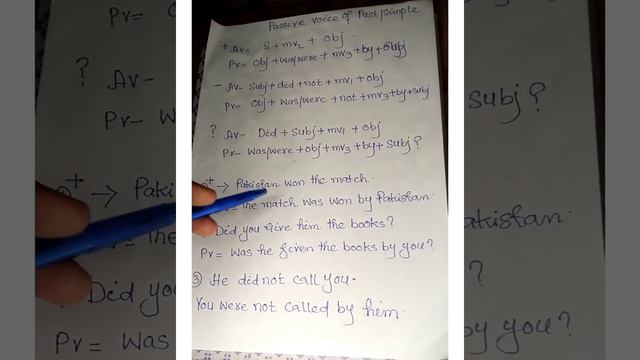 Passive voice of Past/Simple
+ Av= S+mv2 + obj.
Pv= Obj+was/were + mv3 +by+Subj
- Av- Subj+did+not+mv1+obj
Pv= Obj+was/were+not+mv3+by+subj
? Av- Did + Subj+mv1 + obj
Pv- Was/were+obj+mv3+by+Subj?
+ → Pakistan won the match.
= the match was won by Pakistan.
Did you Give him the books?
Pv= Was he given the books by you?
③ He did not call you-
You were not called by him.